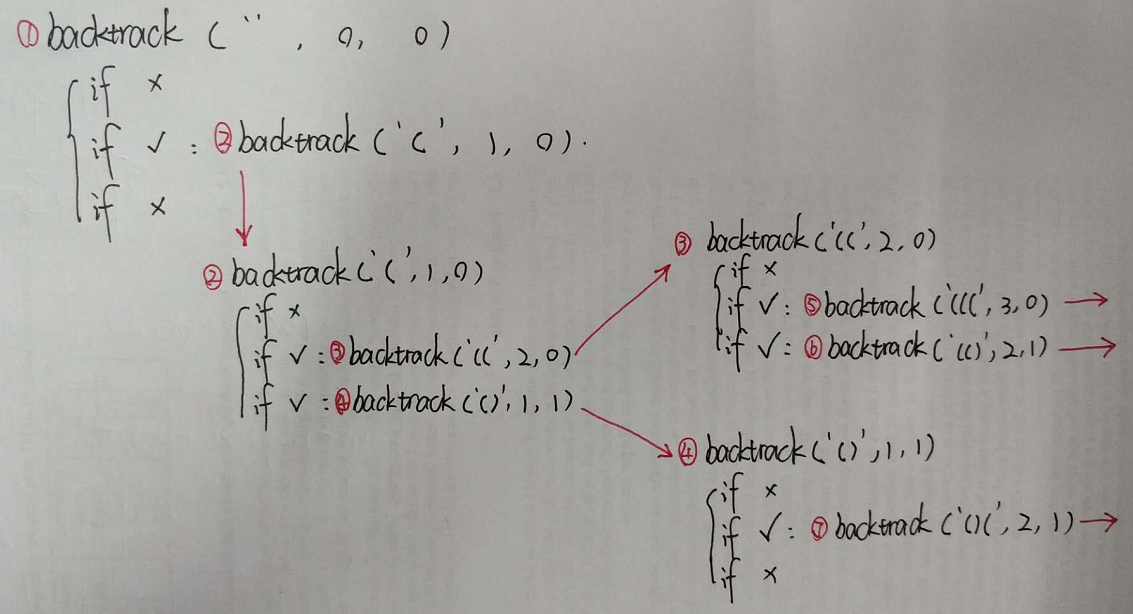 ① backtrack ( '' , 0, 0)
if ×
if ✓ : ② backtrack ('(', 1, 0).
if ×
② backtrack ('(', 1, 0)
if ×
if ✓ : ③ backtrack ('((', 2, 0)
if ✓ : ④ backtrack ('()', 1, 1)
③ backtrack ('((', 2, 0)
if ×
if ✓ : ⑤ backtrack ('(((', 3, 0)
if ✓ : ⑥ backtrack ('(()', 2, 1)
④ backtrack ('()', 1, 1)
if ×
if ✓ : ⑦ backtrack ('()(', 2, 1)
if ×